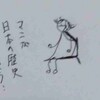 マンガ
日本の歴史